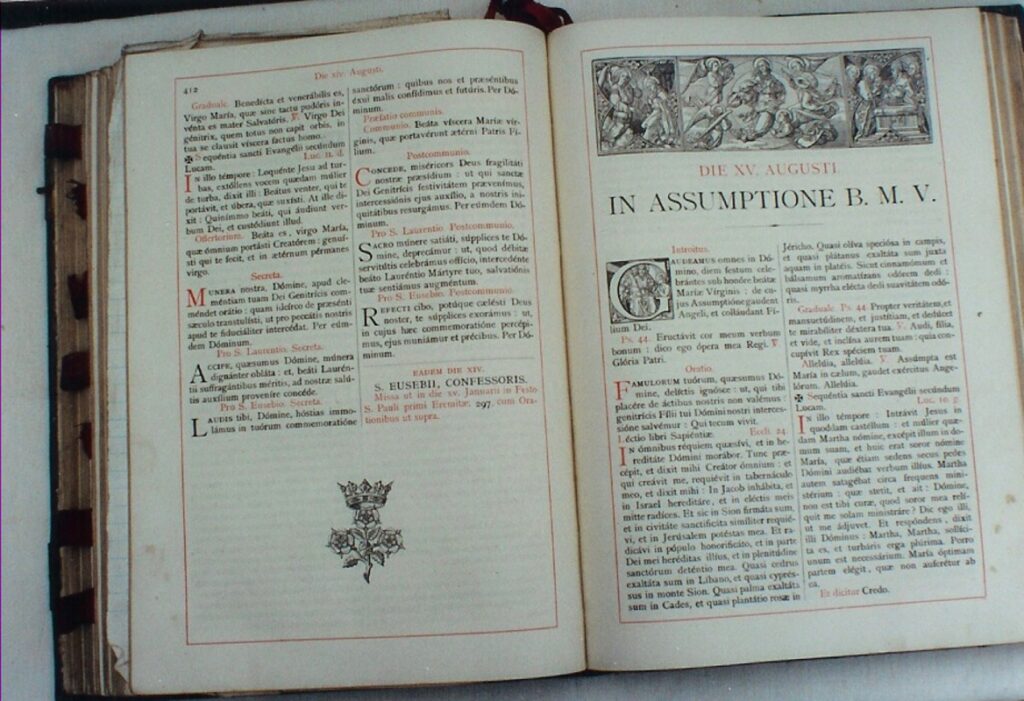 412
Die xiv. Augusti.
Graduale. Benedícta et venerábilis es,
Virgo María, quæ sine tactu pudóris in-
vénta es mater Salvatóris. V. Virgo Dei
génitrix, quem totus non capit orbis, in
tua se clausit víscera factus homo.
✠ Sequéntia sancti Evangélii secúndum
Lucam. Luc. 11. d.
In illo témpore: Loquénte Jesu ad tur-
bas, extóllens vocem quædam múlier
de turba, dixit illi: Beátus venter, qui te
portávit, et úbera, quæ suxísti. At ille di-
xit: Quinímmo beáti, qui áudiunt ver-
bum Dei, et custódiunt illud.
Offertorium. Beáta es, virgo María,
quæ ómnium portásti Creatórem: genuí-
sti qui te fecit, et in ætérnum pérmanes
virgo.
Secreta.
Munera nostra, Dómine, apud cle-
méntiam tuam Dei Genitrícis com-
méndet orátio: quam idcírco de præsénti
sæculo transtulísti, ut pro peccátis nostris
apud te fiduciáliter intercédat. Per eúm-
dem Dóminum.
Pro S. Laurentio. Secreta.
Accipe, quæsumus Dómine, múnera
dignánter obláta: et, beáti Lauréntii
suffragántibus méritis, ad nostræ salú-
tis auxílium proveníre concéde.
Pro S. Eusebio. Secreta.
Laudis tibi, Dómine, hóstias immo-
lámus in tuórum commemoratióne
sanctórum: quibus nos et præséntibus
éxui malis confídimus et futúris. Per Dó-
minum.
Præfatio communis.
Communio. Beáta víscera Maríæ vír-
ginis, quæ portavérunt ætérni Patris Fí-
lium.
Postcommunio.
Concede, miséricors Deus fragilitáti
nostræ præsídium: ut qui sanctæ
Dei Genitrícis festivitátem prævenímus,
intercessiónis ejus auxílio, a nostris ini-
quitátibus resurgámus. Per eúmdem Dó-
minum.
Pro S. Laurentio Postcommunio.
Sacro múnere satiáti, súpplices te Dó-
mine, deprecámur: ut, quod débitæ
servitútis celebrámus offício, intercedénte
beáto Lauréntio Mártyre tuo, salvatiónis
tuæ sentiámus augméntum.
Pro S. Eusebio. Postcommunio.
Refecti cibo, potúque cælésti Deus
noster, te súpplices exorámus: ut,
in cujus hæc commemoratióne percépi-
mus, ejus muniámur et précibus. Per Dó-
minum.
EADEM DIE XIV.
S. EUSEBII, CONFESSORIS.
Missa ut in die xv. Januarii in Festo
S. Pauli primi Eremitæ. 297. cum Ora-
tionibus ut supra.
DIE XV. AUGUSTI
IN ASSUMPTIONE B. M. V.
Introitus.
Gaudeamus omnes in Dó-
mino, diem festum cele-
brántes sub honóre beátæ
Maríæ Vírginis: de cu-
jus Assumptióne gaudent
Angeli, et colláudant Fí-
lium Dei.
Ps. 44. Eructávit cor meum verbum
bonum: dico ego ópera mea Regi. V.
Glória Patri.
Oratio.
Famulorum tuórum, quæsumus Dó-
mine, delíctis ignósce: ut, qui tibi
placére de áctibus nostris non valémus:
genitrícis Fílii tui Dómini nostri interces-
sióne salvémur: Qui tecum vivit.
Léctio libri Sapiéntiæ. Eccli. 24.
In ómnibus réquiem quæsívi, et in he-
reditáte Dómini morábor. Tunc præ-
cépit, et dixit mihi Creátor ómnium: et
qui creávit me, requiévit in tabernáculo
meo, et dixit mihi: In Jacob inhábita, et
in Israel hereditáre, et in eléctis meis
mitte radíces. Et sic in Sion firmáta sum,
et in civitáte sanctificáta simíliter requié-
vi, et in Jerúsalem potéstas mea. Et ra-
dicávi in pópulo honorificáto, et in parte
Dei mei heréditas illíus, et in plenitúdine
sanctórum deténtio mea. Quasi cedrus
exaltáta sum in Líbano, et quasi cyprés-
sus in monte Sion. Quasi palma exaltáta
sum in Cades, et quasi plantátio rosæ in
Jéricho. Quasi olíva speciósa in campis,
et quasi plátanus exaltáta sum juxta
aquam in platéis. Sicut cinnamómum et
bálsamum aromatízans odórem dedi:
quasi myrrha elécta dedi suavitátem odó-
ris.
Graduale Ps. 44. Propter veritátem, et
mansuetúdinem, et justítiam, et dedúcet
te mirabíliter déxtera tua. V. Audi, fília,
et vide, et inclína aurem tuam: quia con-
cupívit Rex spéciem tuam.
Allelúia, allelúia. V. Assúmpta est
María in cælum, gaudet exércitus Ange-
lórum. Allelúia.
✠ Sequéntia sancti Evangélii secúndum
Lucam. Luc. 10. g.
In illo témpore: Intrávit Jesus in
quoddam castéllum: et múlier quæ-
dam Martha nómine, excépit illum in do-
mum suam, et huic erat soror nómine
María, quæ étiam sedens secus pedes
Dómini audiébat verbum illíus. Martha
autem satagébat circa frequens mini-
stérium: quæ stetit, et ait: Dómine,
non est tibi curæ, quod soror mea relí-
quit me solam ministráre? Dic ergo illi,
ut me ádjuvet. Et respóndens, dixit
illi Dóminus: Martha, Martha, sollíci-
ta es, et turbáris erga plúrima. Porro
unum est necessárium. María óptimam
partem elégit, quæ non auferétur ab
ea.
Et dicitur Credo.